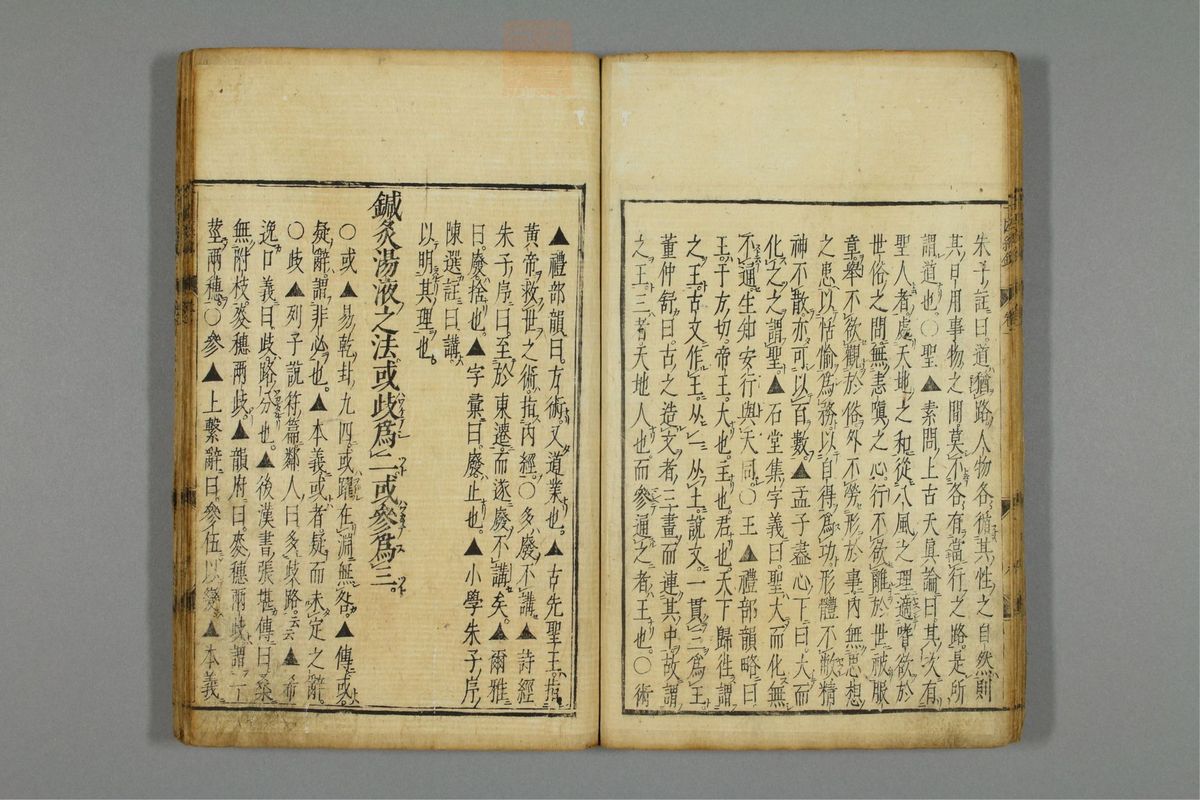 朱子註曰道猶路人物各循其性之自然則
其日用事物之間莫不各有當行之路是所
謂道也〇聖▲素問上古天眞論曰其次有
聖人者處天地之和從八風之理適嗜欲於
世俗之間無恚嗔之心行不欲離於世被服
章舉不欲觀於俗外不勞形於事內無思想
之患以恬愉爲務以自得爲功形體不敝精
神不散亦可以百數▲孟子盡心下曰大而
化之之謂聖▲石堂集字義曰聖大而化無
不通生知安行與天同〇王▲禮部韻略曰
王于方切帝王大也主也君也天下歸往謂
之王古文作王从一从土說文一貫三爲王
董仲舒曰古之造文者三畫而連其中故謂
之王三者天地人也而參通之者王也〇術
▲禮部韻曰方術又道業也▲古先聖王指
黃帝救世之術指內經〇多廢不講▲詩經
朱子序曰至於東遷而遂廢不講矣▲爾雅
曰廢捨也▲字彙曰廢止也▲小學朱子序
陳選註曰講
以明其理也
鍼灸湯液之法或歧爲二或參爲三
〇或▲易乾卦九四或躍在淵無咎▲傳或
疑辭謂非必也▲本義或者疑而未定之辭
〇歧▲列子說符篇鄰人曰多歧路云云▲希
逸口義曰歧路分也▲後漢書張堪傳曰桑
無附枝麥穗兩歧▲韻府曰麥穗兩歧謂一
莖兩穗〇參▲上繫辭曰參伍以變▲本義